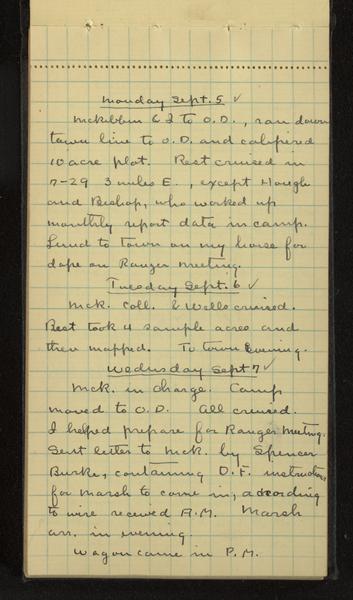 Monday Sept. 5 ✓
McKibbin & I to O.D., ran down
town line to O.D. and calipered
10 acre plot. Rest cruised in
7-29 3 miles E., except Hough
and Bishop, who worked up
monthly report data in camp.
Lund to town on my horse for
dope on Ranger meeting.
Tuesday Sept. 6 ✓
McK. Coll. & Wells cruised.
Rest took 4 sample acres and
then mapped. To town Evening.
Wednesday Sept 7 ✓
McK. in charge. Camp
moved to O.D. All cruised.
I helped prepare for Ranger Meeting.
Sent letter to McK. by Spencer
Burke, containing D.F. instructions
for Marsh to come in, according
to wire received A.M. Marsh
arr. in evening.
Wagon came in P.M.